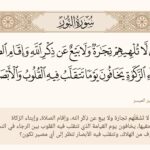 سُورَةُ النُّورِ
لَّا تُلْهِيهِمْ تِجَارَةٌ وَلَا بَيْعٌ عَن ذِكْرِ اللَّهِ وَإِقَامِ
الزَّكَاةِ يَخَافُونَ يَوْمًا تَتَقَلَّبُ فِيهِ الْقُلُوبُ وَالْأَبْصَارُ
لا تشغلهم تجارة ولا بيع عن ذكر الله، وإقام الصلاة، وإيتاء الزكاة
يخافون يوم القيامة الذي تتقلب فيه القلوب بين الرجاء في
من الهلاك، وتتقلب فيه الأبصار تنظر إلى أي مصير تكون؟